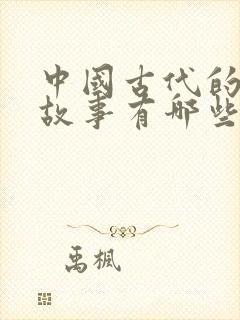 中國古代的
故事有哪些
禹楓